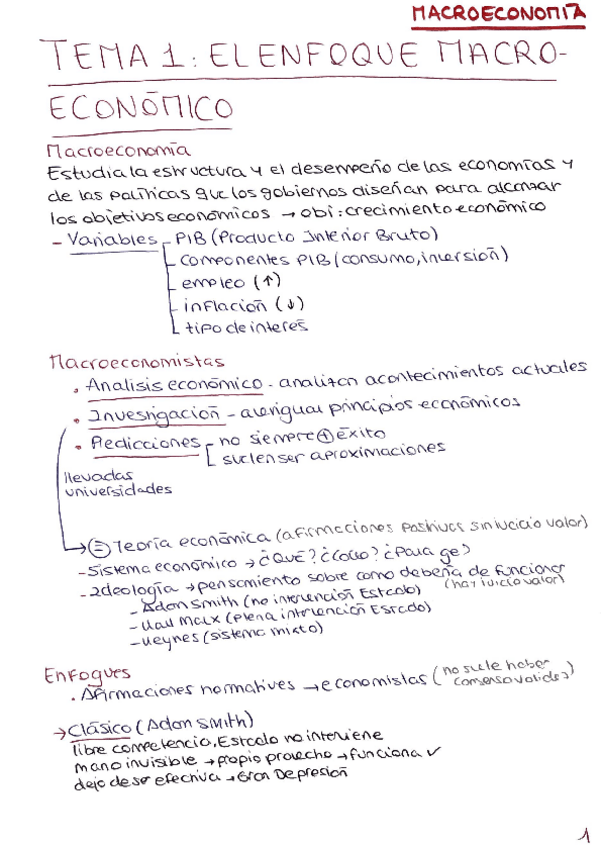 MACROECONOMÍA
TEMA 1: EL ENFOQUE MACRO-
ECONÓMICO
Macroeconomía
Estudia la estructura y el desempeño de las economías y
de las políticas que los gobiernos diseñan para alcanzar
los objetivos económicos → obj: crecimiento económico
- Variables - PIB (Producto Interior Bruto)
- componentes PIB (consumo, inversión)
- empleo (↑)
- inflación (↓)
- tipo de interés
Macroeconomistas
• Análisis económico - analizan acontecimientos actuales
• Investigación - averiguar principios económicos
• Predicciones - no siempre éxito
suelen ser aproximaciones
llevadas
universidades
→ Teoría económica (afirmaciones positivas sin juicio valor)
- Sistema económico → ¿Qué? ¿Cómo? ¿Para qe?
- Ideología → pensamiento sobre como debería de funcionar
(hay juicio valor)
- Adam Smith (no intervención Estado)
- Karl Marx (plena intervención Estado)
- Keynes (sistema mixto)
Enfoques
• Afirmaciones normatives → economistas (no suele haber
consenso validez)
→ Clásico (Adam Smith)
libre competencia, Estado no interviene
mano invisible → propio provecho → funciona ✓
dejo de ser efectiva → Gran Depresión
1